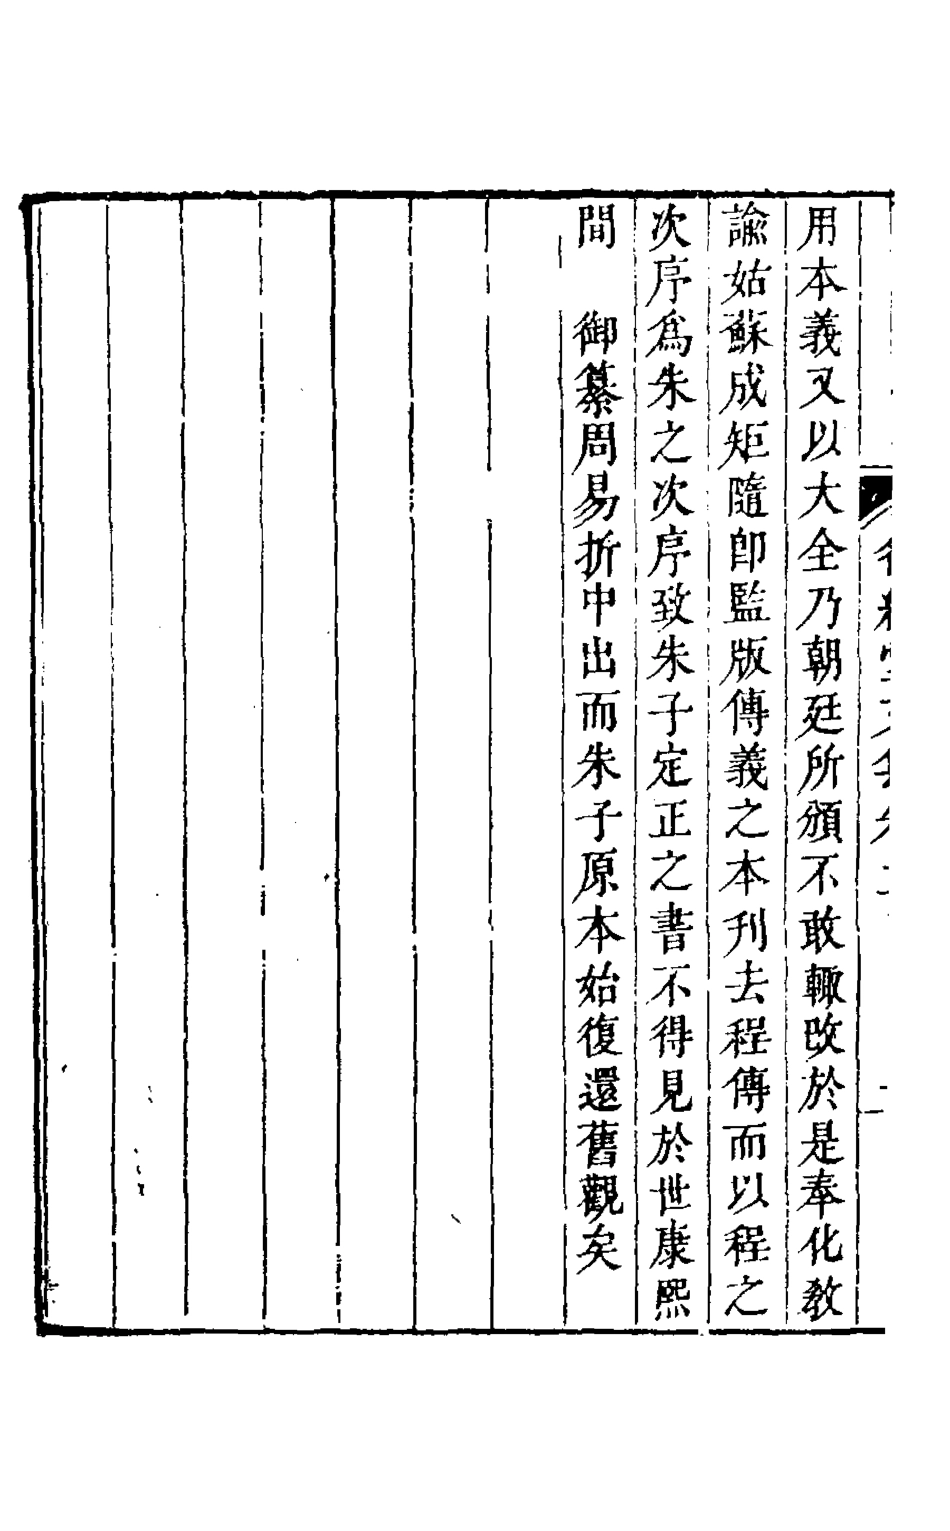 用本義又以大全乃朝廷所頒不敢輙改於是奉化教
諭姑蘇成矩隨卽監版傳義之本刋去程傳而以程之
次序爲朱之次序致朱子定正之書不得見於世康熙
間　御纂周易折中出而朱子原本始復還舊觀矣